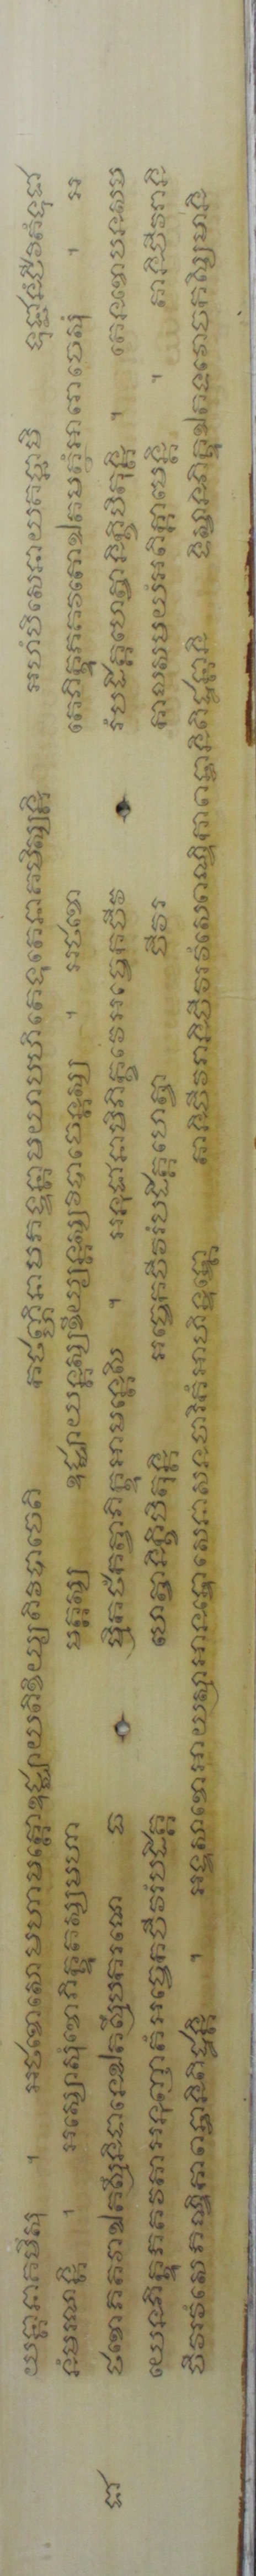 យន្តានាគមឹសុ ។ អថខោសោមហាមត្តោឧជ្ឈាយតិខិយ្យតិវិបាចេតិ កថញ្ហិនាមភទន្តាមយាបហិតេទុតេនាគមិស្សន្តិ អហំបិសេនាយគច្ឆាមិ ទុជ្ជានំជីវិតំទុជា
នំមរណន្តិ ។ អស្សោសុំខោភិក្ខុតស្សមហា មត្តស្ស ឧជ្ឈាយន្តស្សខីយ្យន្តស្សវិបាចេន្តស្ស ។ អថខោ តេភិក្ខុភគវតោឯតមត្ថំអារោចេសុំ ។ អ
ជា ថខោភគវាឯតស្មឹនិទានេឯតស្មឹបករណេ ធ ម្មិកថំកត្វាភិក្ខុអាមន្តេសិ ។ អនុជានាមិភិក្ខវេអច្ចេកចីវ រំបដិគ្គហេត្វានិក្ខិបិតុន្តិ ។ តេនខោបនសម
យេនភិក្ខុភគវតាអនុញាតំអច្ចេកចីវរំបដិគ្គ ហេត្វានិក្ខិបិតុន្តិ អច្ចេកចីវរំបដិគ្គហេត្វា ចីវរ កាលសមយំអតិក្កាមេន្តិ ។ តានិចីវរានិ
ចីវរវំសេភណ្ឌិកាពទ្ធានិតិដ្ឋន្តិ ។ អទ្ទសាខោអាយស្មាអានន្ទោសេនាសនចារិកំអាហិន្ទន្តោ តានិចីវរានិចីវរវំសេពណ្ឌិកាពទ្ធានិតិដ្ឋន្តានិ ទិស្វានភិក្ខុឯតទវោចកស្សិមានិ